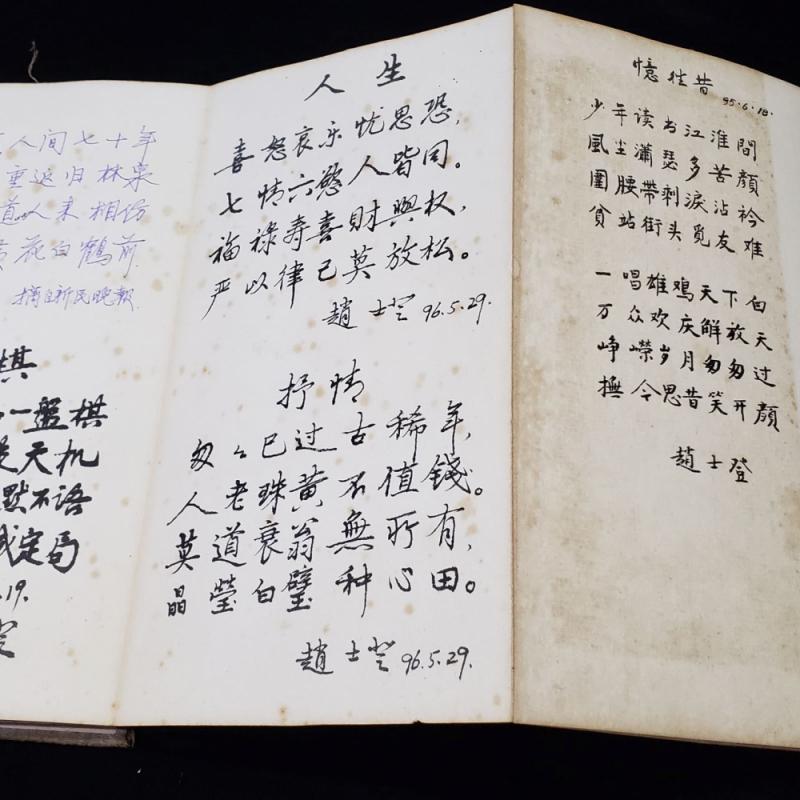 人间七十年
重返归林泉
道人来相份
花白鹤前
摘自新民晚报
棋
一盤棋
天机
默不语
定局
19.
人生
喜怒哀乐忧思恐，
七情六慾人皆同。
福祿寿喜財興权，
严以律己莫放松。
趙士登 96.5.29.
抒情
匆々已过古稀年，
人老珠黄不值錢。
莫道衰翁無所有，
晶瑩白璧种心田。
趙士登 96.5.29.
憶往昔
95.6.18.
少年读书江淮間
風尘瀟瑟多苦顔
圍腰帶剩淚沾衿
贫站街头覓友难
一唱雄鸡天下白
万众欢庆解放天
峥嶸岁月匆匆过
撫今思昔笑开顔
趙士登